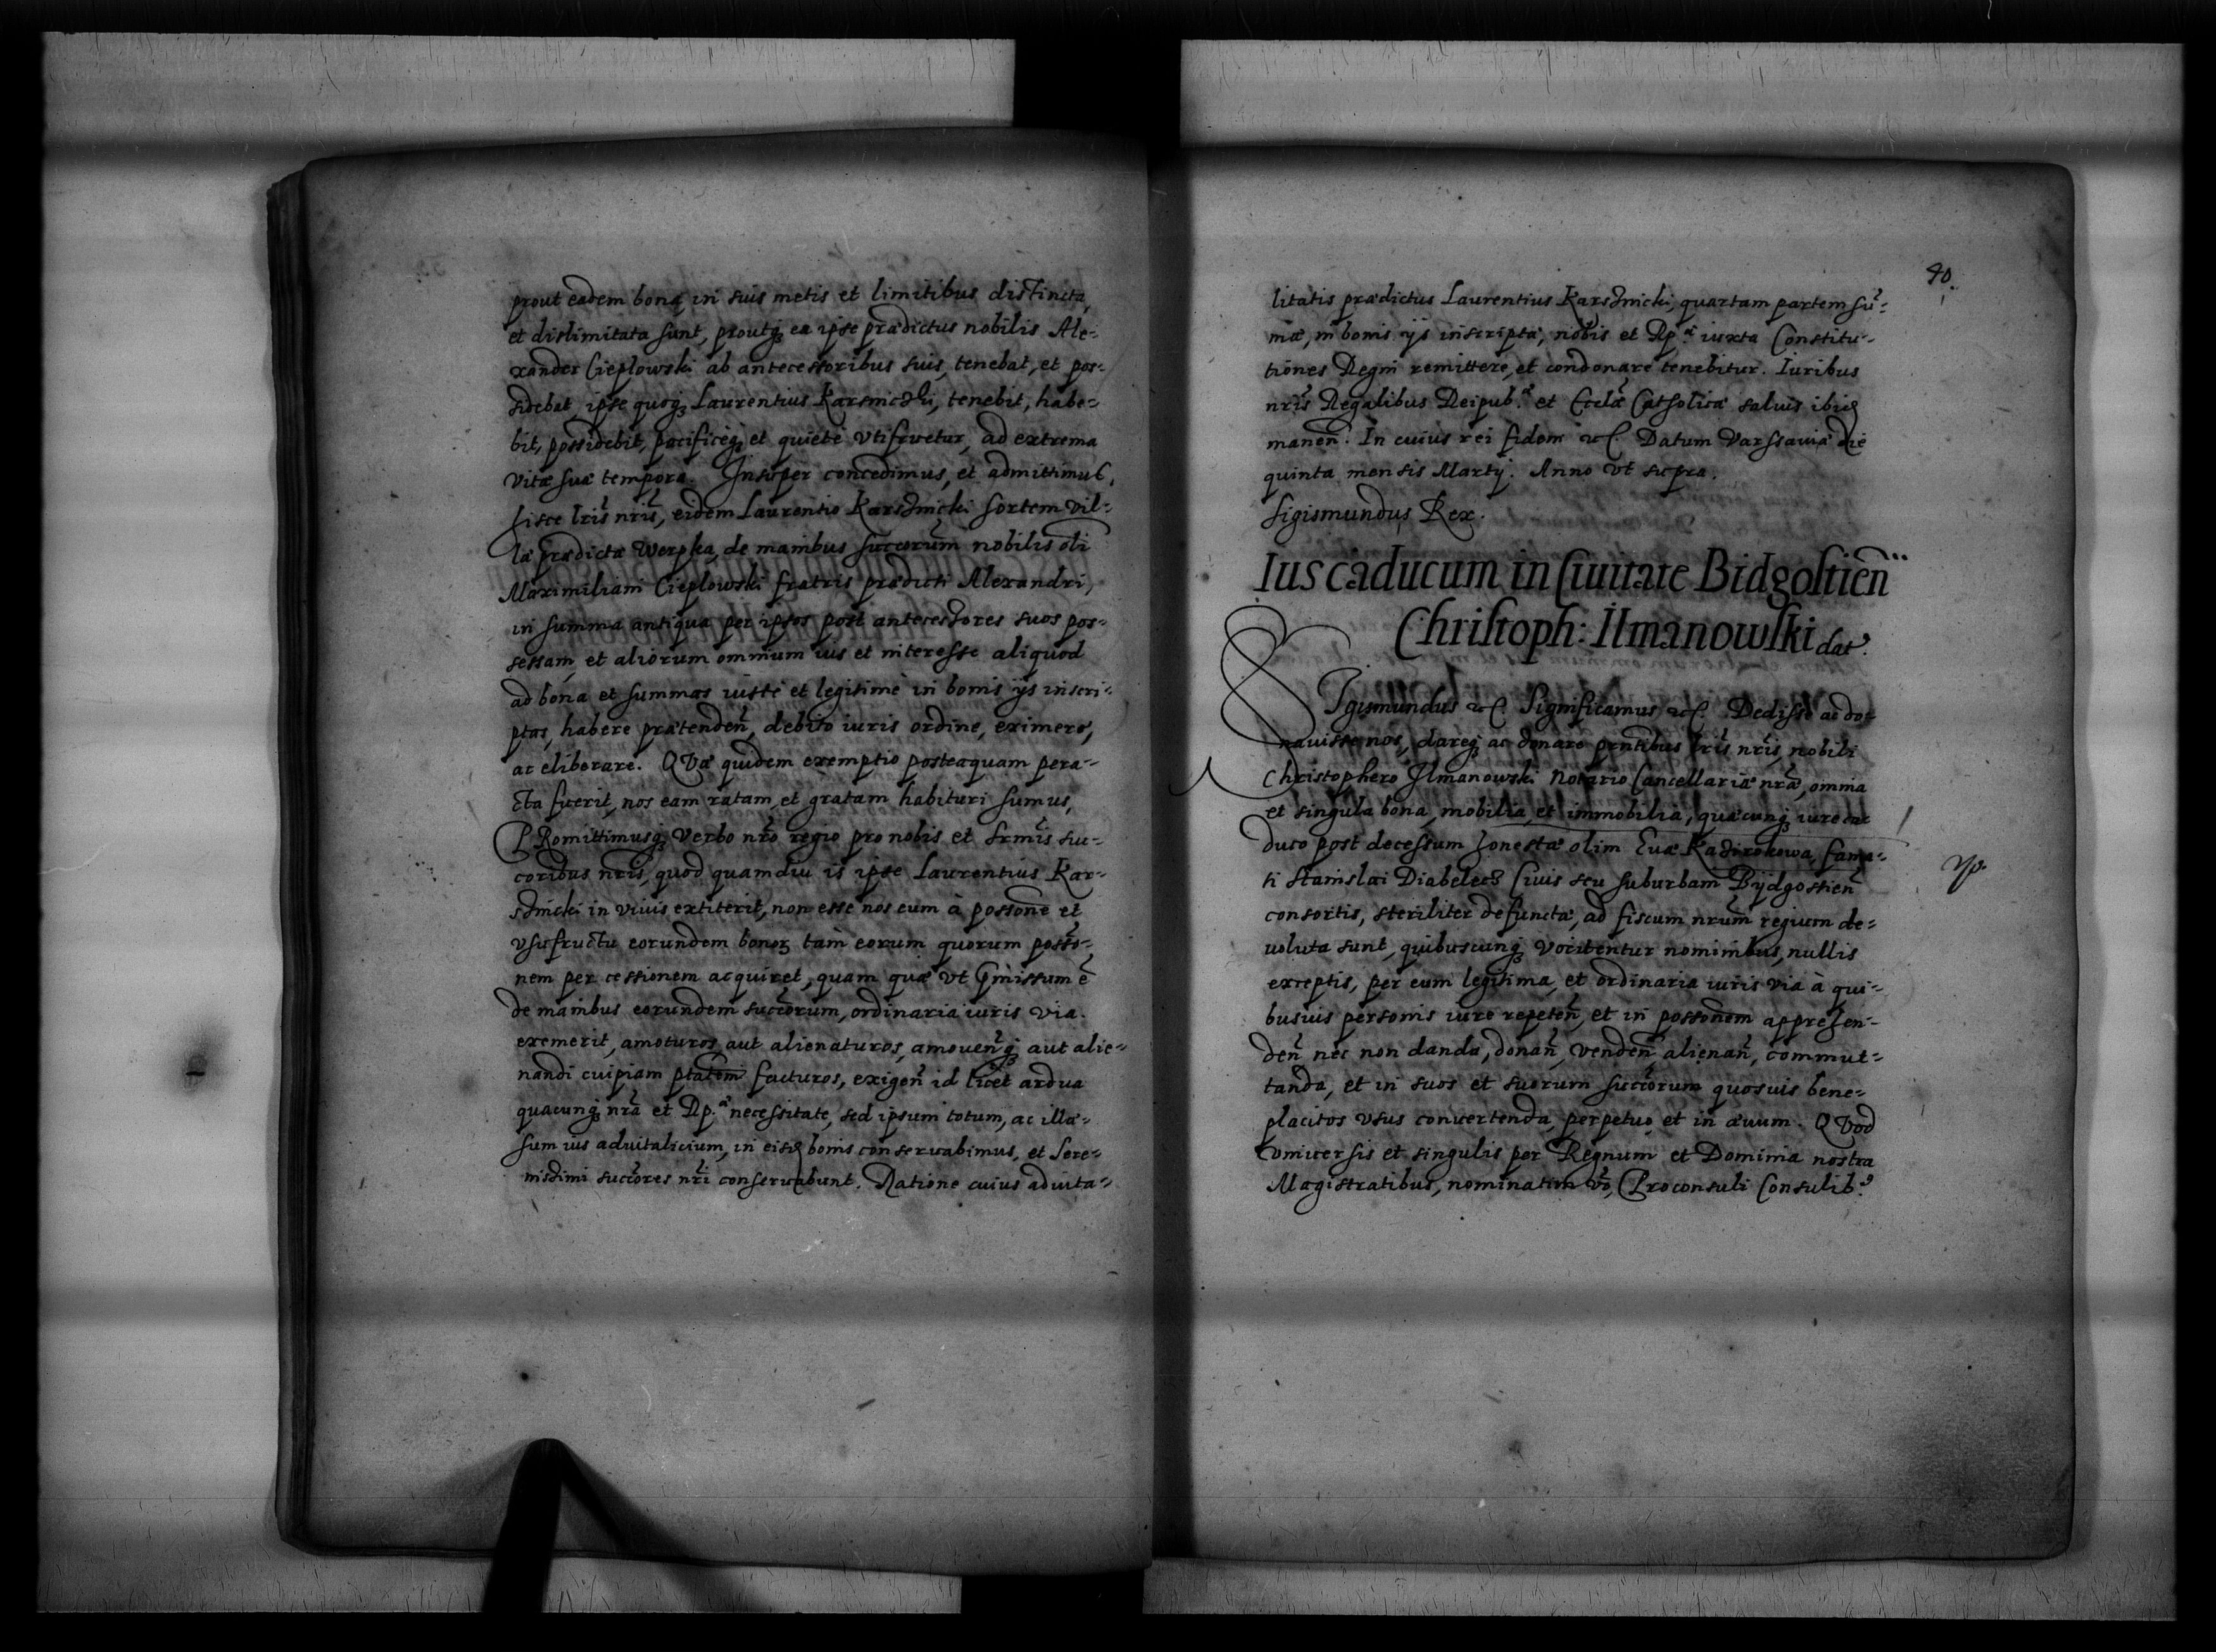 prout eadem bona in suis metis et limitibus distincta,
et dislimitata sunt, proutq₃ ea ipse prædictus nobilis Ale-
xander Cieplowski ab antecessoribus suis, tenebat, et pos-
sidebat, ipse quoq₃ Laurentius Karsnicki, tenebit, habe-
bit, possidebit, pacificeq₃ et quietè vtifruetur, ad extrema
vitæ suæ tempora. Insuper concedimus, et admittimus,
hisce lris nris, eidem Laurentio Karsznicki sortem vil-
læ prædictæ Werpka, de manibus succorum nobilis oli
Maximiliani Cieplowski fratris prædicti Alexandri,
in summa antiqua per ipsos post antecessores suos pos-
sessam, et aliorum omnium ius et interesse aliquod
ad bona et summas iustè et legitimè in bonis ijs inscri-
ptas, habere prætenden, debito iuris ordine, eximere,
ac eliberare. QVæ quidem exemptio posteaquam pera-
cta fuerit, nos eam ratam, et gratam habituri sumus,
PRomittimusq₃ verbo nro regio pro nobis et srmis suc-
coribus nris, quod quamdiu is ipse Laurentius Kar-
sznicki in viuis extiterit, non esse nos eum à possone et
vsufructu eorundem bonor₃ tam eorum quorum posso-
nem per cessionem acquiret, quam quæ vt pmissum e
de manibus eorundem succorum, ordinaria iuris via
exemerit, amoturos aut alienaturos, amouenq₃ aut alie-
nandi cuipiam ptatem facturos, exigen id licet ardua
quacunq₃ nra et Rp.æ necessitate, sed ipsum totum, ac illæ-
sum ius aduitalicium, in eisd bonis conseruabimus, et Sere-
nissimi succores nri conseruabunt. Ratione cuius aduita-
40.
litatis prædictus Laurentius Karsznicki, quartam partem su-
mæ, in bonis ijs inscriptæ, nobis et Rp.æ iuxta Constitu-
tiones Regni remittere, et condonare tenebitur. Iuribus
nris Regalibus Reipub.æ et Ecclæ Catholicæ saluis ibid
manen. In cuius rei fidem etc. Datum Varssauiæ die
quinta mensis Martij. Anno vt supra.
Sigismundus Rex.
Ius caducum in Ciuitate Bidgostien
Christoph: Ilmanowski dat.
SIgismundus etc. Significamus etc. Dedisse ac do-
nauisse nos, dareq₃ ac donare prntibus lris nris, nobili
Christophero Ilmanowski Notario Cancellariæ nræ, omnia
et singula bona, mobilia, et immobilia, quæcunq₃ iure ca-
duco post decessum honestæ olim Euæ Kazirokowa, fama-
ti Stanislai Diabelecz Ciuis seu suburbani Bijdgostien
consortis, steriliter defunctæ, ad fiscum nrum regium de-
uoluta sunt, quibuscunq₃ vocitentur nominibus, nullis
exceptis, per eum legitima, et ordinaria iuris via à qui-
busuis personis iure repeten, et in possonem apprehen-
den nec non danda, donan, venden alienan, commut-
tanda, et in suos et suorum succorum quosuis bene-
placitos vsus conuertenda, perpetuo et in æuum. QVod
vniuersis et singulis per Regnum et Dominia nostra
Magistratibus, nominatim vo, Proconsuli Consulib.